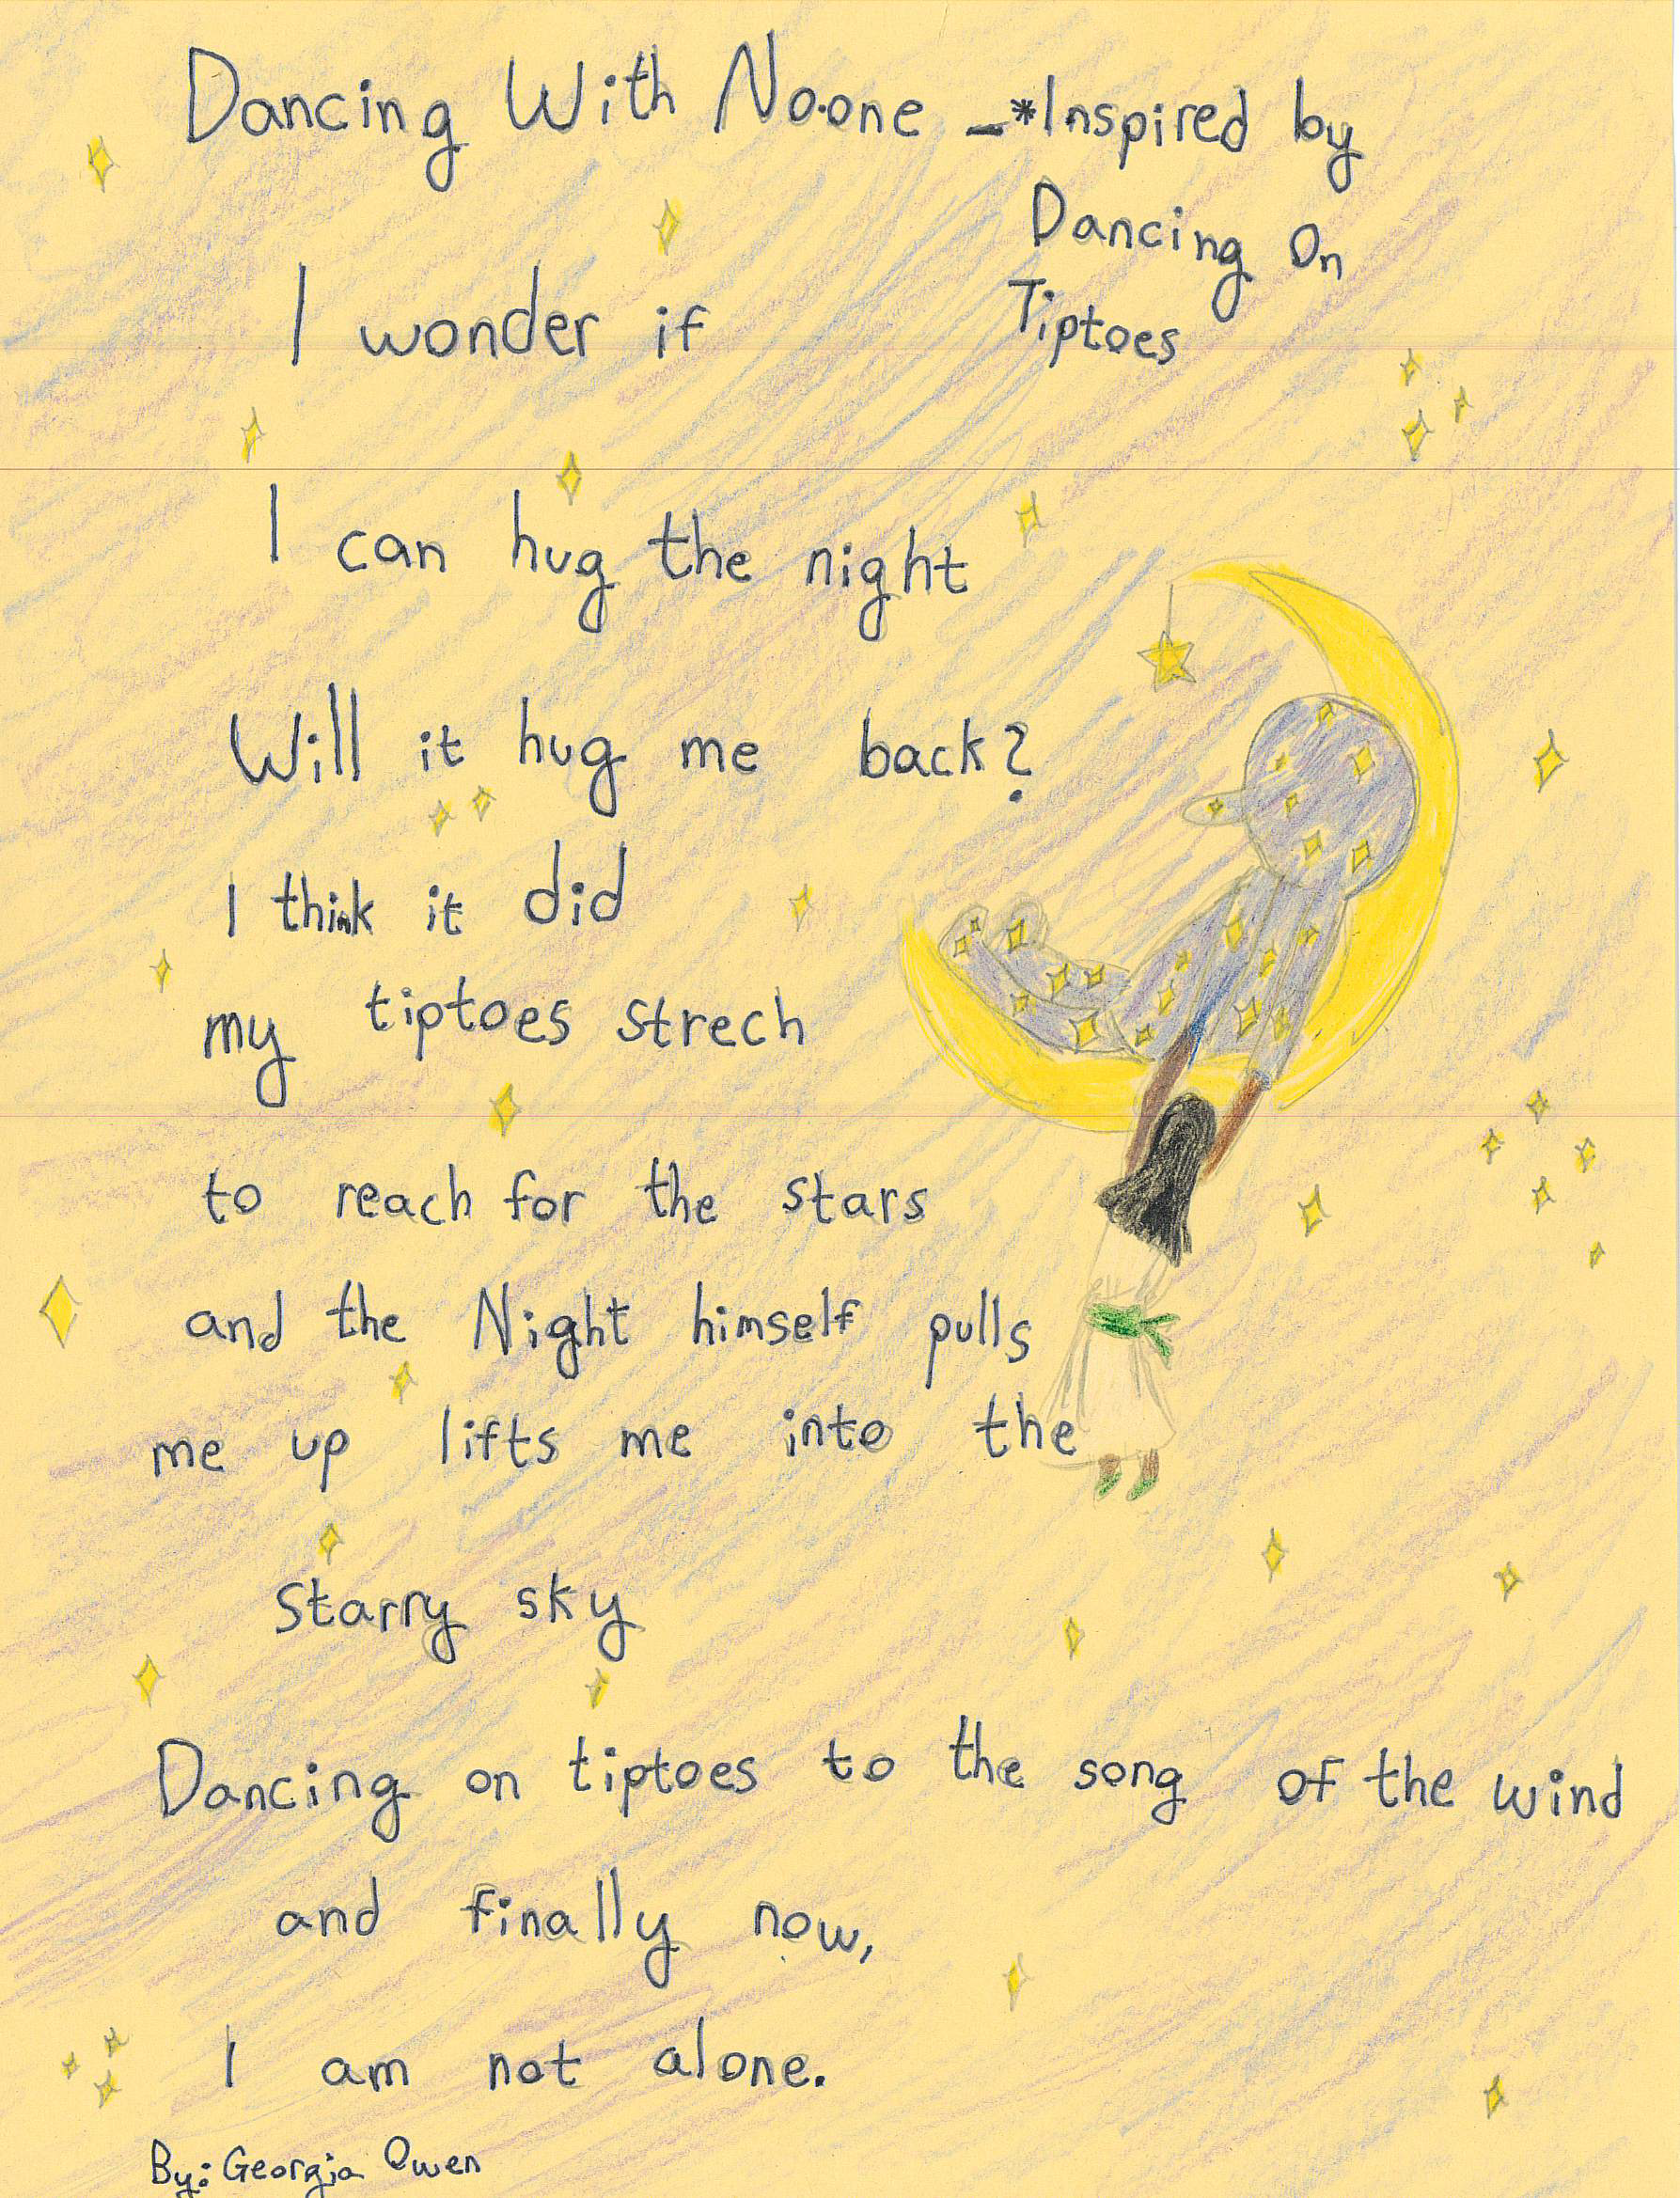 Dancing With No.one -*Inspired by
Dancing On
Tiptoes
I wonder if
I can hug the night
Will it hug me back?
I think it did
my tiptoes strech
to reach for the stars
and the Night himself pulls
me up lifts me into the
starry sky
Dancing on tiptoes to the song of the wind
and finally now,
I am not alone.
By: Georgia Owen